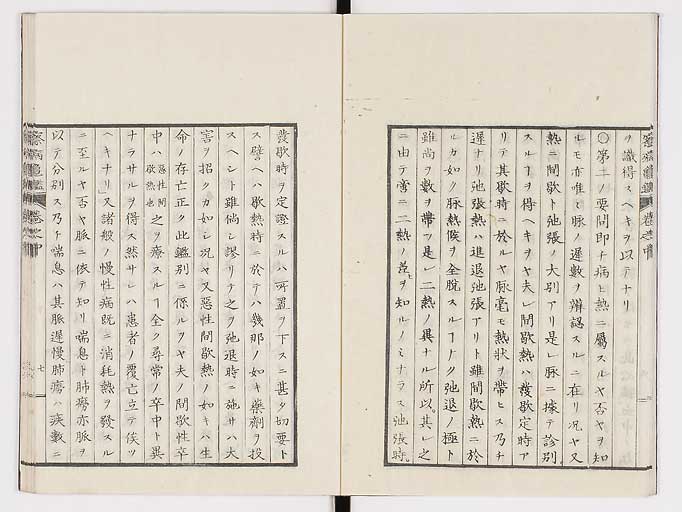 ヲ識得スヘキヲ以テナリ
○第二ノ要問即チ病ヒ熱ニ屬スルヤ否ヤヲ知
ルモ亦唯ミ脉ノ遲數ヲ辨認スルニ在リ况ヤ又
熱ニ間歇ト弛張ノ大别アリ是レ脉ニ據テ診别
スルヿヲ得ヘキヲヤ夫レ間歇熱ハ發歇定時ア
リテ其歇時ニ於ルヤ脉毫モ熱狀ヲ帶ヒス乃チ
遲ナリ弛張熱ハ進退弛張アリト雖間歇熱ニ於
ルカ如ク脉熱候ヲ全脫スルヿナク弛退ノ極ト
雖尚ヲ數ヲ帶フ是レ二熱ノ異ナル所以其レ之
ニ由テ啻ニ二熱ノ差ヲ知ルノミナラス弛張時
發歇時ヲ定證スルハ可否ヲ下スニ甚タ切要ト
ス譬ヘハ歇熱時ニ於テハ幾那ノ如キ藥劑ヲ投
スヘシト雖倘シ謬リテ之ヲ弛退時ニ施サハ大
害ヲ招クカ如シ况ヤ又惡性間歇熱ノ如キハ生
命ノ存亡正ク此鑑别ニ係ルヲヤ夫ノ間歇性卒
中ハ惡性間歇熱也之ヲ療スルヿ全ク尋常ノ卒中ト異
ナラサルヲ得ス然サレハ患者ノ覆亡立テ俟ツ
ヘキナリ又諸般ノ慢性病既ニ消耗熱ヲ發スル
ニ至ルヤ否ヤ脉ニ依テ知リ喘息ト肺癆亦脉ヲ
以テ分别ス乃チ喘息ハ其脉遲慢肺癆ハ疾數ニ
察病龜鑑 卷之中
七